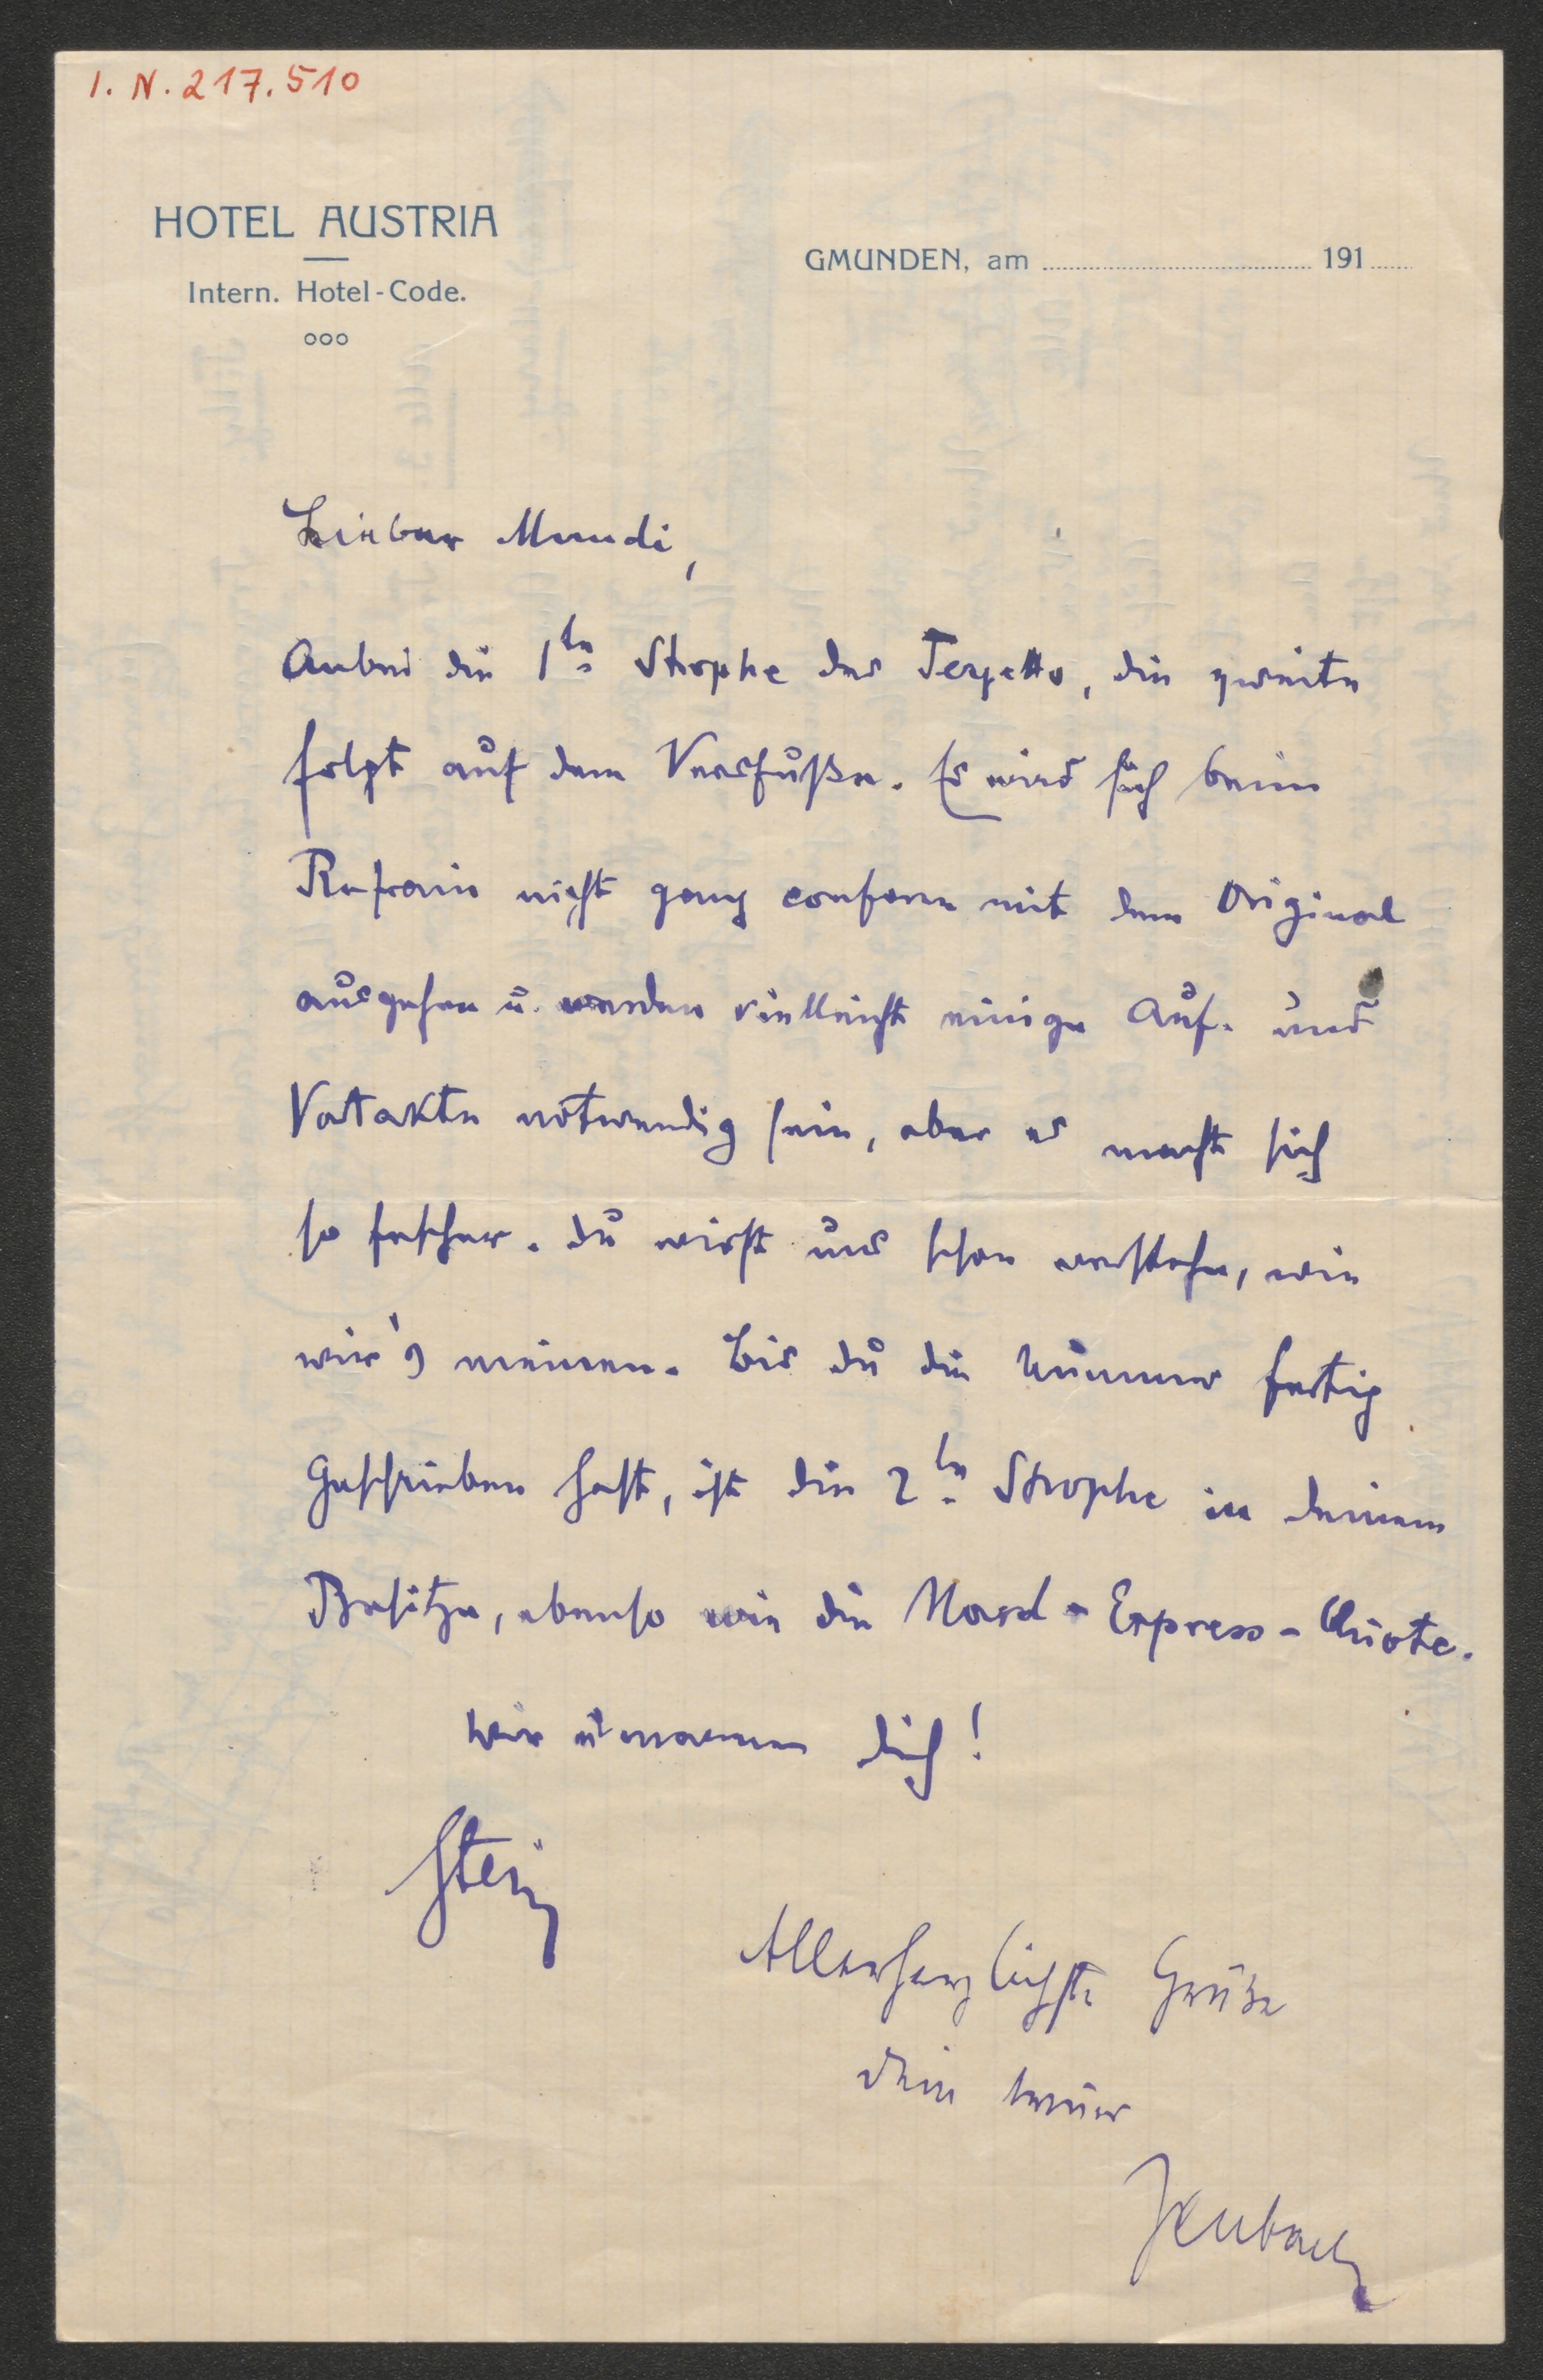 I. N. 217.510
HOTEL AUSTRIA
Intern. Hotel-Code.
GMUNDEN, am 191
Lieber Mundi,
Anbei die 1te Strophe des Terzetts, die zweite
folgt auf dem Versfuße. Es wird sich beim
Refrain nicht ganz conform mit dem Original
ausgehen u. werden vielleicht einige Auf- und
Vortakte notwendig sein, aber es macht sich
so fescher. Du wirst uns schon verstehn, wie
wir's meinen. Bis du die Nummer fertig
geschrieben hast, ist die 2te Strophe in deinem
Besitze, ebenso wie die Nord-Express-
Wir umarmen dich!
Stein
Allerherzlichste Grüße
Dein treuer
Jenbach